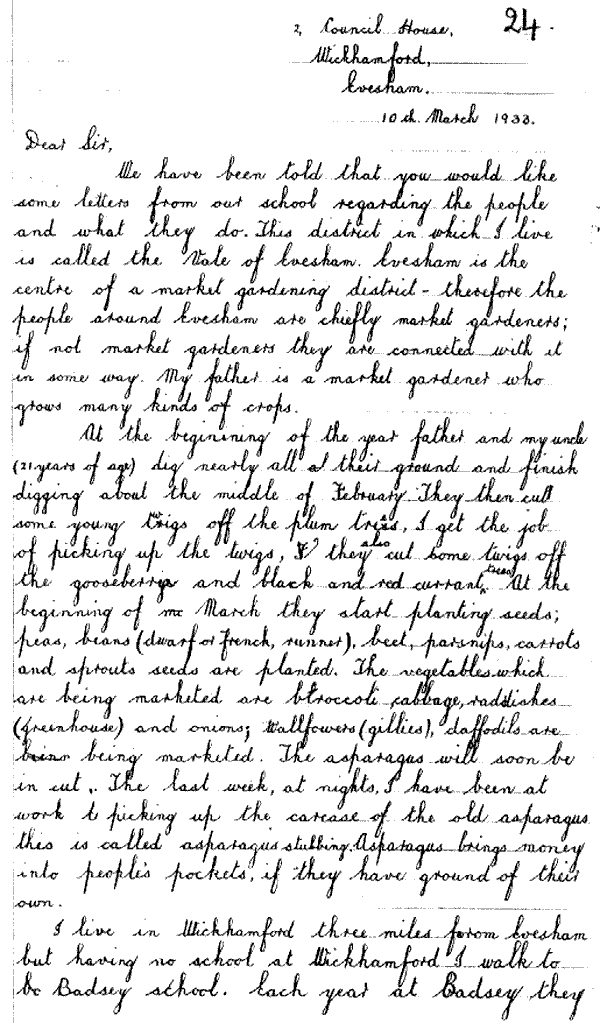 2, Council House, 24.
Wickhamford,
Evesham.
10th. March 1933.
Dear Sir,
We have been told that you would like
some letters from our school regarding the people
and what they do. This district in which I live
is called the Vale of Evesham. Evesham is the
centre of a market gardening district - therefore the
people around Evesham are chiefly market gardeners;
if not market gardeners they are connected with it
in some way. My father is a market gardener who
grows many kinds of crops.
At the beginining of the year father and my uncle
(21 years of age) dig nearly all of their ground and finish
digging about the middle of February. They then cut
some young twigs off the plum trees, I get the job
of picking up the twigs, they also cut some twigs off
the gooseberry and black and red currant trees. At the
beginning of March they start planting seeds;
peas, beans (dwarf or french, runner), beet, parsnips, carrots
and sprouts seeds are planted. The vegetables which
are being marketed are broccoti, cabbage, raddishes
(greenhouse) and onions; wallfowers (gillies), daffodils are
being marketed. The asparagus will soon be
in cut. The last week, at nights, I have been at
work picking up the carcase of the old asparagus
this is called asparagus stubbing. Asparagus brings money
into people's pockets, if they have ground of their
own.
I live in Wickhamford three miles from Evesham
but having no school at Wickhamford I walk to
Badsey school. Each year at Badsey they